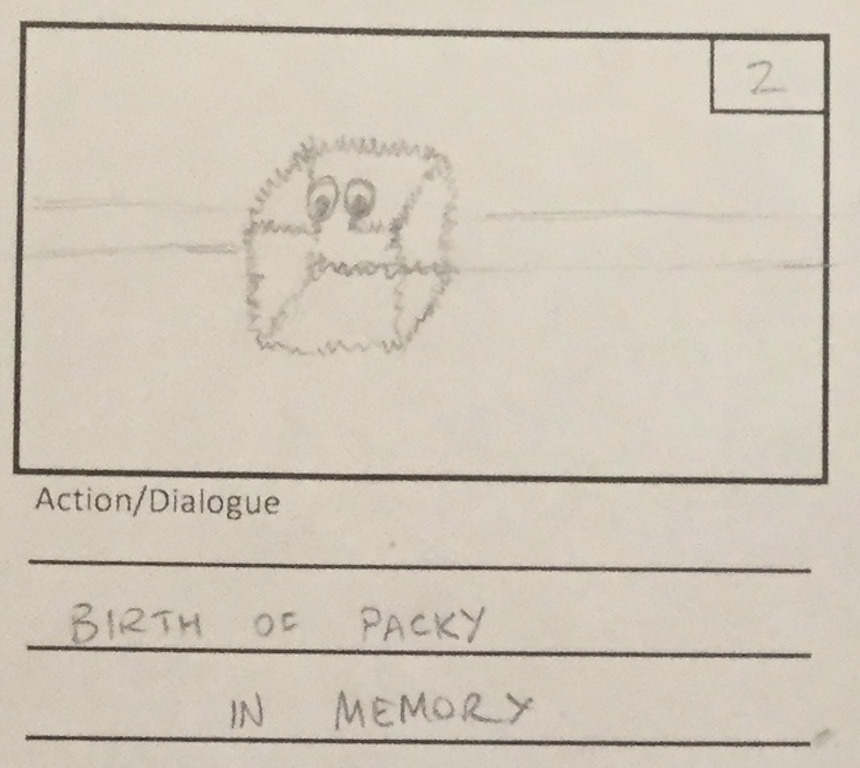 2
Action/Dialogue
BIRTH OF PACKY
IN MEMORY